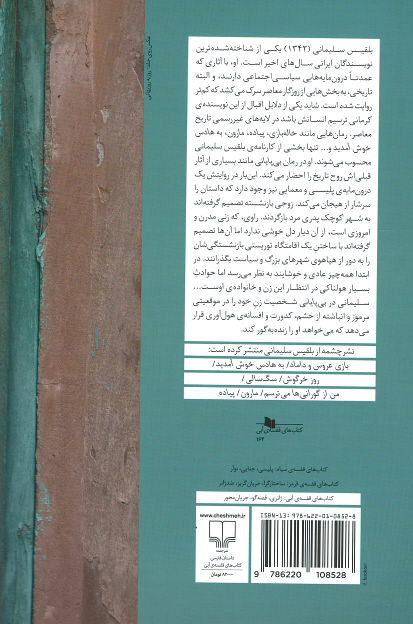 بلقیس سلیمانی (۱۳۴۲) یکی از شناخته‌شده‌ترین
نویسندگان ایرانی سال‌های اخیر است. او، با آثاری که
عمدتاً درون‌مایه‌هایی سیاسی‌اجتماعی دارند، و البته
تاریخی، به بخش‌هایی از روزگار معاصر سرک می‌کشد که کم‌تر
روایت شده است. شاید یکی از دلایل اقبال از این نویسنده‌ی
کرمانی ترسیم انسانش باشد در لایه‌های غیررسمی تاریخ
معاصر. رمان‌هایی مانند خاله‌بازی، پیاده، مارون، به هادس
خوش آمدید و... تنها بخشی از کارنامه‌ی بلقیس سلیمانی
محسوب می‌شوند. او در رمان بی‌پایانی مانند بسیاری از آثار
قبلی‌اش روح تاریخ را احضار می‌کند. این‌بار در روایتش یک
درون‌مایه‌ی پلیسی و معمایی نیز وجود دارد که داستان را
سرشار از هیجان می‌کند. زوجی بازنشسته تصمیم گرفته‌اند
به شهر کوچک پدری مرد بازگردند. راوی، که زنی مدرن و
امروزی است، از آن دیار دل خوشی ندارد اما آن‌ها تصمیم
گرفته‌اند با ساختن یک اقامتگاه توریستی بازنشستگی‌شان
را به دور از هیاهوی شهرهای بزرگ و سیاست بگذرانند. در
ابتدا همه‌چیز عادی و خوشایند به نظر می‌رسد اما حوادثِ
بسیار هولناکی در انتظار این زن و خانواده‌ی اوست...
سلیمانی در بی‌پایانی شخصیت زن خود را در موقعیتی
مرموز و انباشته از خشم، کدورت و افسانه‌ی هول‌آوری قرار
می‌دهد که می‌خواهد او را زنده‌به‌گور کند.
نشر چشمه از بلقیس سلیمانی منتشر کرده است:
بازی عروس و داماد/ به هادس خوش آمدید/
روز خرگوش/ سگ‌سالی/
من از گورانی‌ها می‌ترسم/ مارون/ پیاده
کتاب‌های قفسه‌ی آبی
کتاب‌های قفسه‌ی سیاه: پلیسی، جنایی، نوآر
کتاب‌های قفسه‌ی قرمز: ساختارگرا، جریان‌گریز، ضدژانر
کتاب‌های قفسه‌ی آبی: ژانری، قصه‌گو، جریان‌محور
ISBN-13: 978-622-01-0852-8
9 786220 108528
www.cheshmeh.ir
نشرچشمه
داستان فارسی
کتاب‌های قفسه‌ی آبی